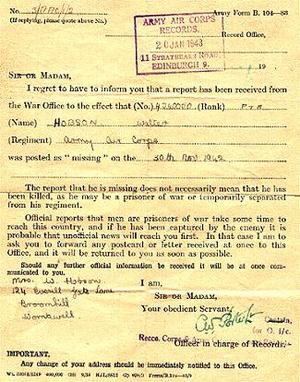 No.
Army Form B. 104—83
(If replying, please quote above No.)
ARMY AIR CORPS
RECORDS.
20 JAN 1943
11 STRATHEARN ROAD,
EDINBURGH 9.
Record Office,
19
SIR OR MADAM,
I regret to have to inform you that a report has been received from
the War Office to the effect that (No.) (Rank) Pte
(Name) HOBSON Walter
(Regiment) Army Air Corps
was posted as "missing" on the 30th Nov 1942
The report that he is missing does not necessarily mean that he has
been killed, as he may be a prisoner of war or temporarily separated
from his regiment.
Official reports that men are prisoners of war take some time to
reach this country, and if he has been captured by the enemy it is
probable that unofficial news will reach you first. In that case I am to
ask you to forward any postcard or letter received at once to this
Office, and it will be returned to you as soon as possible.
Should any further official information be received it will be at once com-
municated to you.
Mrs. W. Hobson
I am,
124 Lane
SIR OR MADAM,
Broomhill
Your obedient Servant,
Wombwell
Captain,
Officer in charge of Records.
IMPORTANT.
Any change of your address should be immediately notified to this Office.